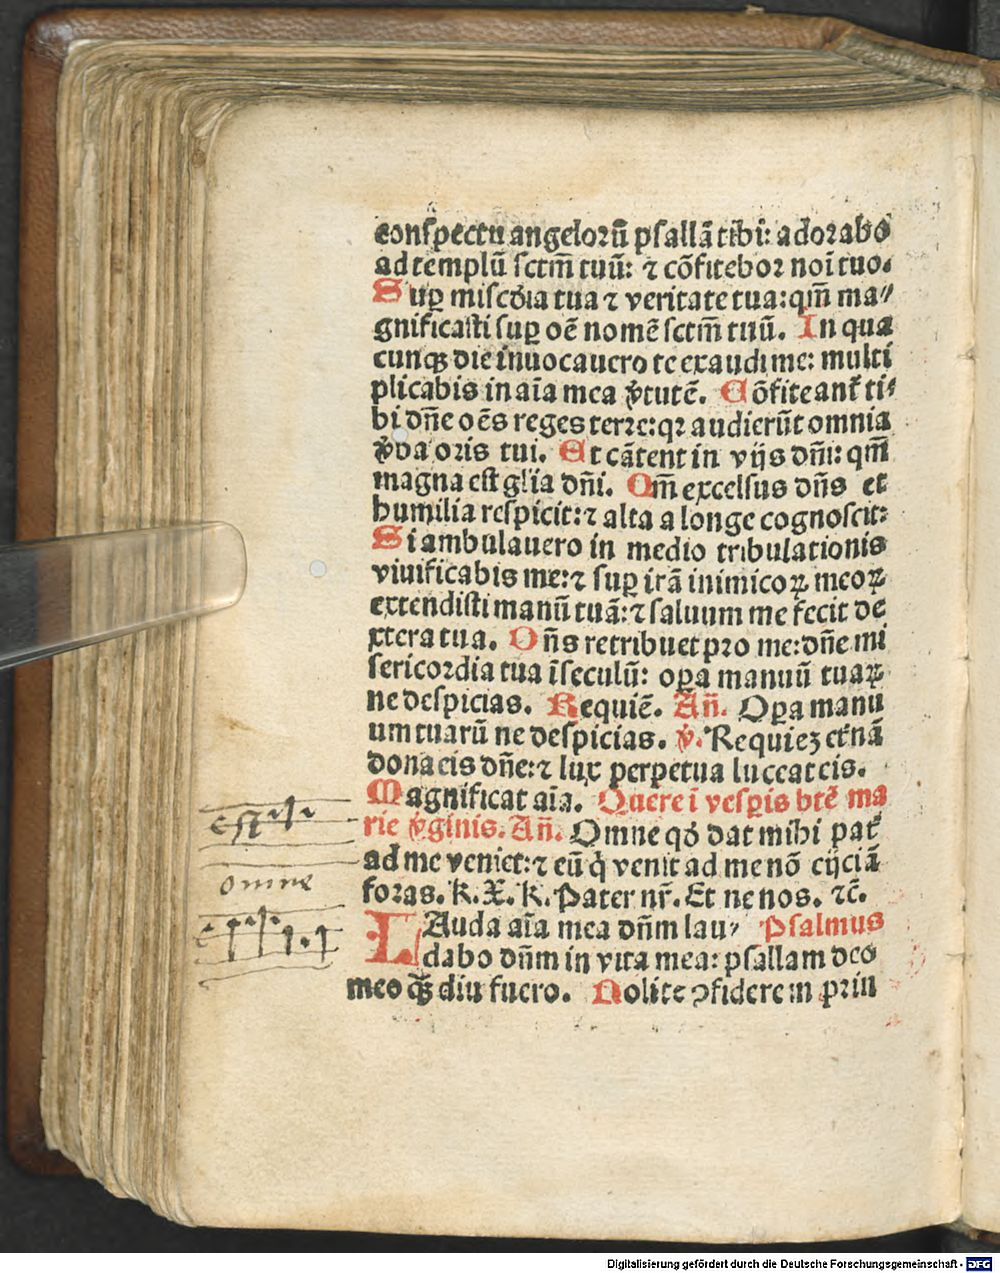 conspectu angeloꝝ̃ psallã tibi: adorabo
ad templũ sctm̃ tuũ: ⁊ cõfitebor noĩ tuo.
Suꝑ misc̃dia tua ⁊ veritate tua: qm̃ ma⸗
gnificasti suꝑ oẽ nomẽ sctm̃ tuũ. In qua
cunqꝫ die inuocauero te exaudi me: multi
plicabis in aĩa mea v̾tutẽ. Cõfiteant᷑ ti⸗
bi dñe oẽs reges terre: qꝛ audierũt omnia
v̾ba oris tui. Et cãtent in vijs dñi: qm̃
magna est glĩa dñi. Qm̃ excelsus dñs et
humilia respicit: ⁊ alta a longe cognoscit:
Si ambulauero in medio tribulationis
viuificabis me: ⁊ suꝑ irã inimicoꝝ meoꝝ
extendisti manũ tuã: ⁊ saluum me fecit de
xtera tua. Dñs retribuet pro me: dñe mi
sericordia tua ĩ seculũ: oꝑa manuũ tuaꝝ
ne despicias. Requiẽ. Añ. Oꝑa manu
um tuarũ ne despicias. v̾. Requiez et̾nã
dona eis dñe: ⁊ lux perpetua luceat eis.
Magnificat aĩa. Quere ĩ vesꝑis btẽ ma
rie v̾ginis. Añ. Omne qď dat mihi pat᷑
ad me veniet: ⁊ eũ q̇ venit ad me nõ eijciã
foras. k. X. k. Pater nr̃. Et ne nos. ⁊c̃.
LAuda aĩa mea dñm lau⸗ Psalmus
dabo dñm in vita mea: psallam deo
meo qꝫ̃ diu fuero. Nolite ꝯfidere in prin
est
omne
Digitalisierung gefördert durch die Deutsche Forschungsgemeinschaft - DFG